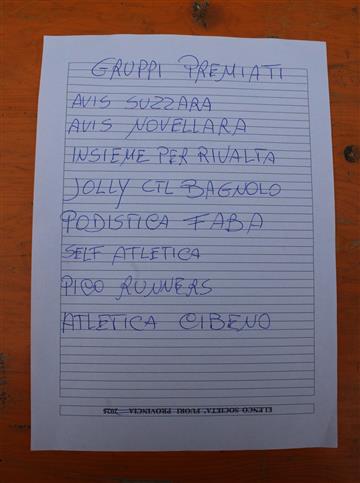 GRUPPI PREMIATI
AVIS SUZZARA
AVIS NOVELLARA
INSIEME PER RIVALTA
JOLLY CTL BAGNOLO
PODISTICA FABA
SELF ATLETICA
PICO RUNNERS
ATLETICA CIBENO
ELENCO SOCIETA' FUORI PROVINCIA 2025